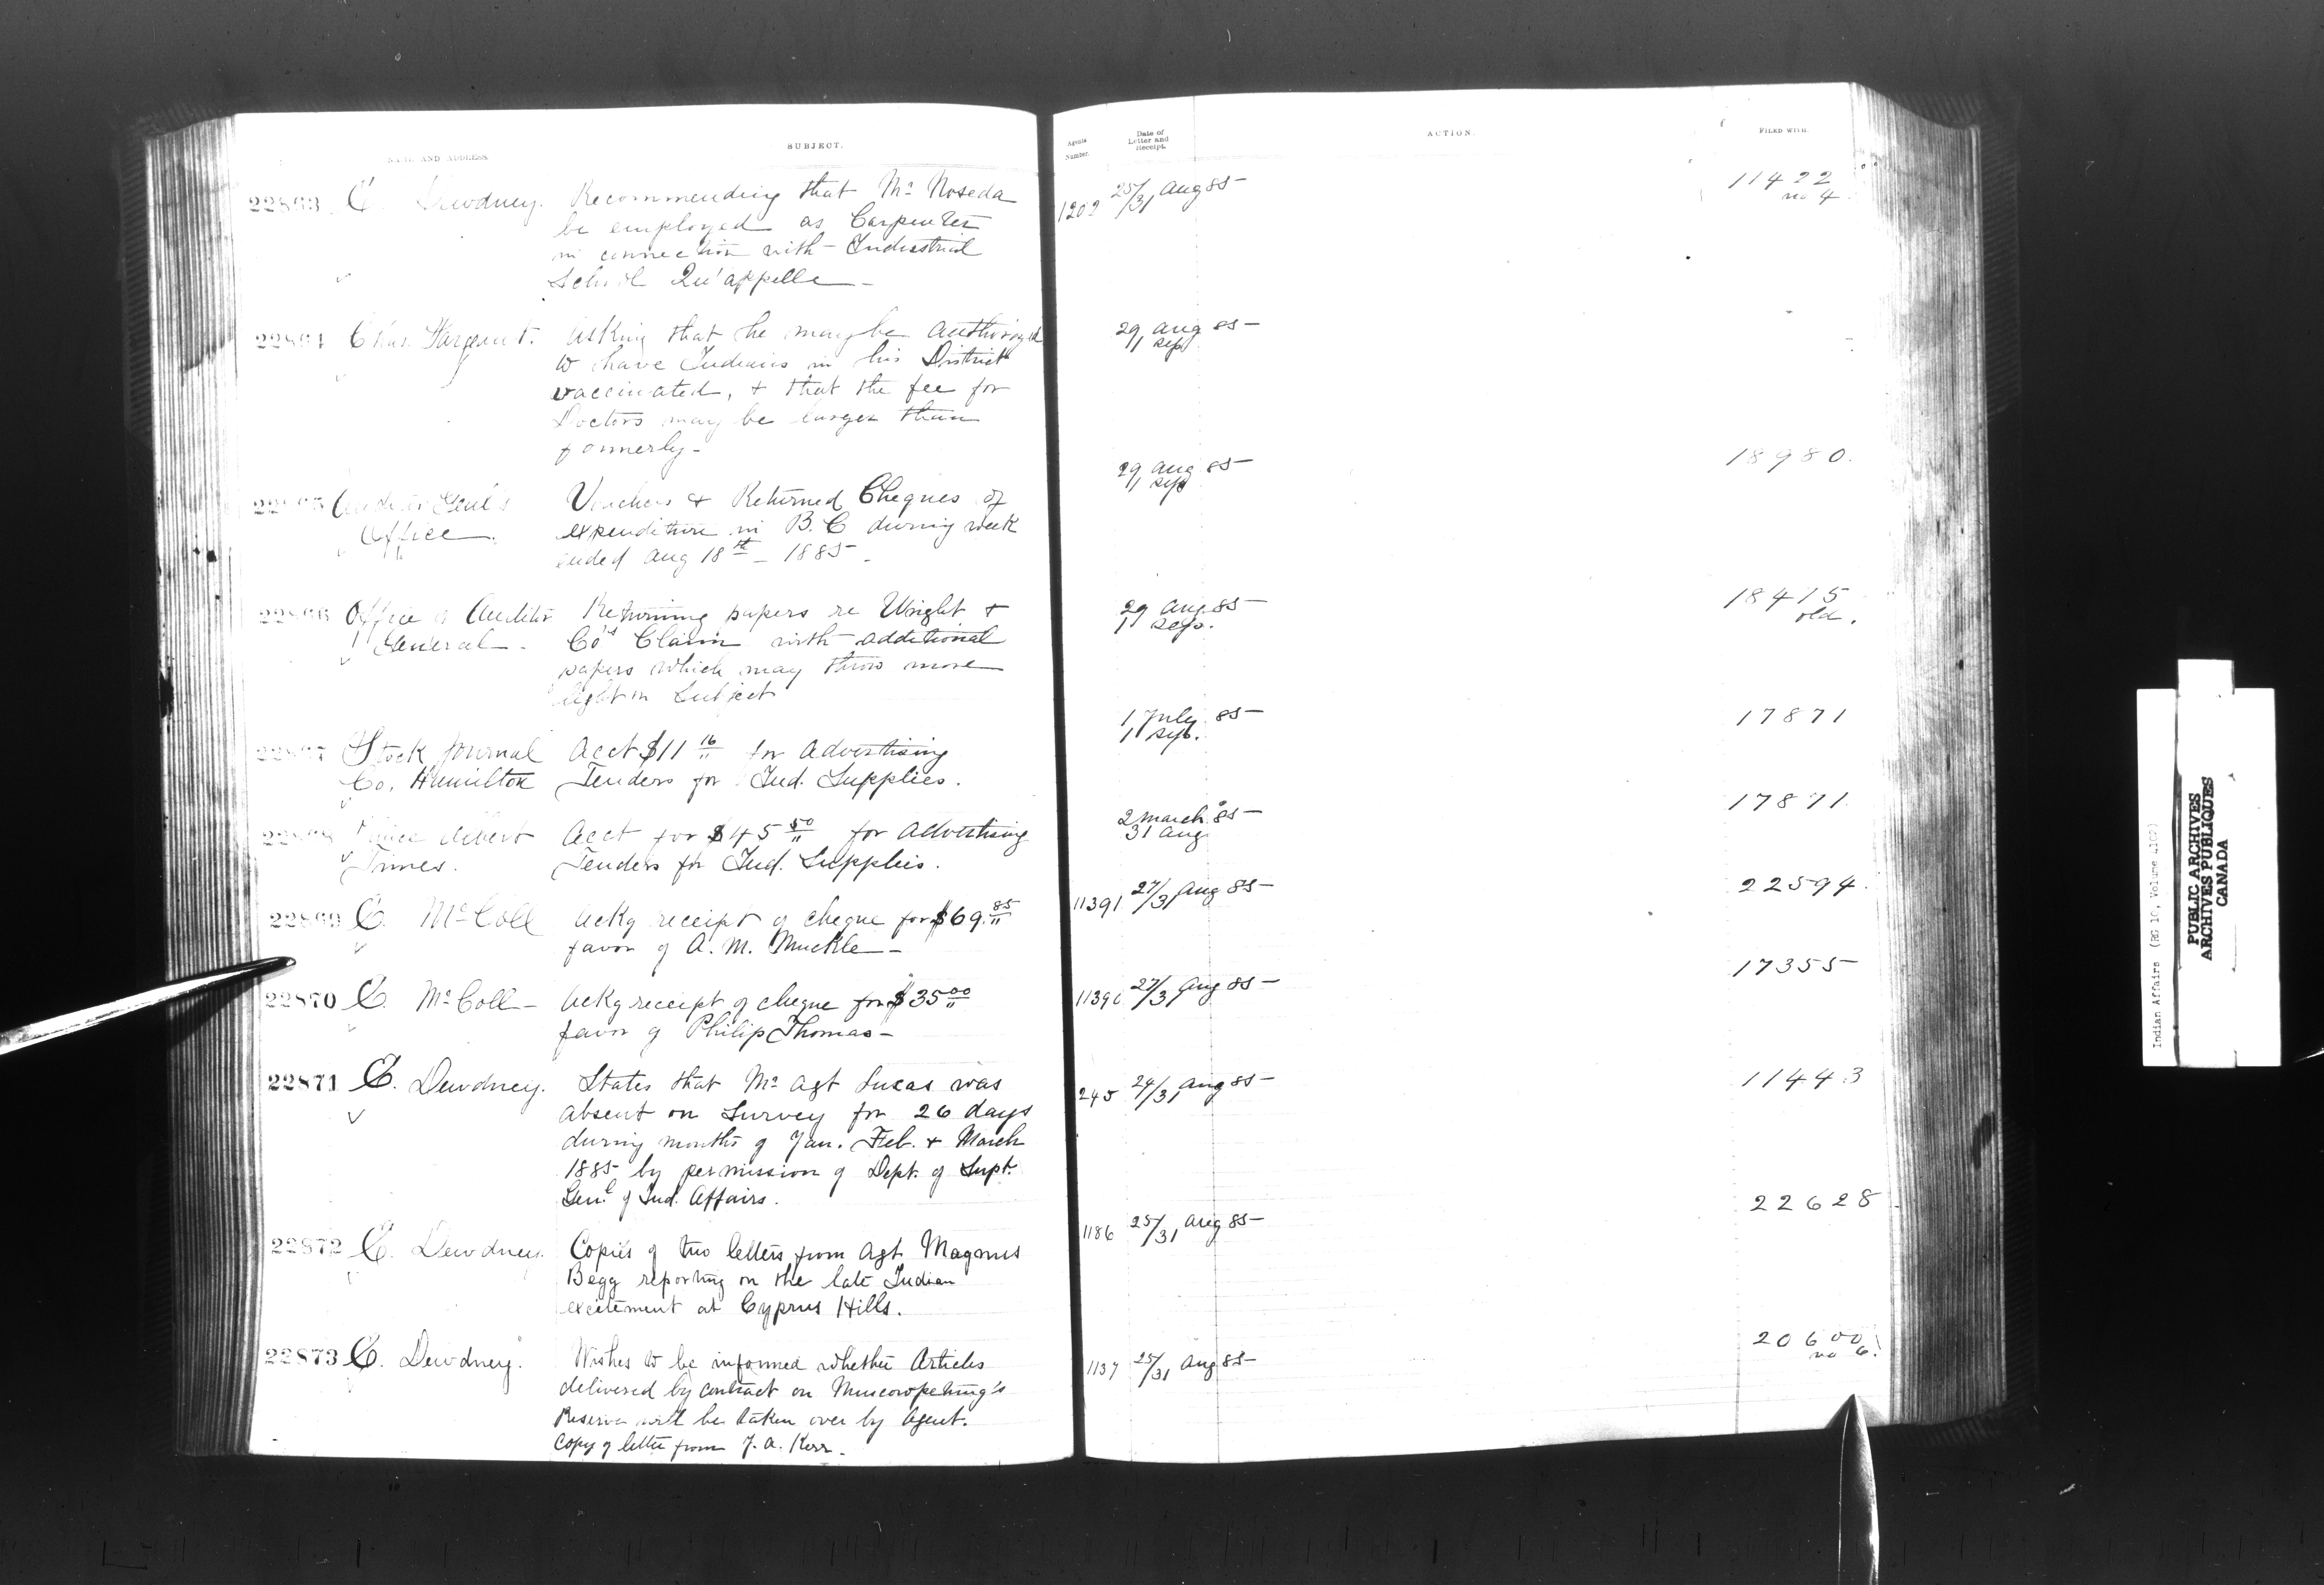 NAME AND ADDRESS
SUBJECT.
Agents Number.
Date of Letter and Receipt.
ACTION.
FILED WITH.
22863 E. Dewdney. Recommending that Mr Noseda
be employed as Carpenter
in connection with Industrial
School Qu'appelle -
1202 25/31 Aug 85
11422
no 4
22864 Chas. Sargent. Asking that he may be authorized
to have Indians in his District
vaccinated, & that the fee for
Doctors may be larger than
formerly -
29 Aug 85
1 Sep
22865 Auditor Genl's Vouchers & Returned Cheques of
Office. expenditure in B.C during week
ended Aug 18th - 1885 -
29 Aug 85
1 Sep
18980.
22866 Office of Auditor Returning papers re Wright &
General - Co's Claim with additional
papers which may throw more
light on Subject
29 Aug. 85
1 Sep.
18415
old.
22867 Stock Journal Acct $11 16 for Advertising
Co. Hamilton Tenders for Ind. Supplies.
1 July 85
1 Sep.
17871
22868 Prince Albert Acct for $45 50 for Advertising
Times. Tenders for Ind. Supplies.
2 March 85
31 Aug
17871
22869 E. McColl Ackg receipt of cheque for $69.85
favor of A. M. Muckle -
11391 27/31 Aug 85
22594
22870 E. McColl - Ackg receipt of cheque for $35 00
favor of Philip Thomas -
11390 27/31 Aug 85
17355
22871 E. Dewdney. States that Mr Agt Lucas was
absent on Survey for 26 days
during months of Jan. Feb. & March
1885 by permission of Dept. of Supt.
Genl of Ind. Affairs.
245 24/31 Aug 85
11443
22872 E. Dewdney. Copies of two letters from Agt Magnus
Begg reporting on the late Indian
excitement at Cyprus Hills.
1186 25/31 Aug 85
22628
22873 E. Dewdney. Wishes to be informed whether Articles
delivered by contract on Muscowpetung's
Reserve will be taken over by Agent.
Copy of letter from J. A. Kerr.
1137 25/31 Aug 85
20600
no 6.
Indian Affairs (RG 10, Volume
PUBLIC ARCHIVES
ARCHIVES PUBLIQUES
CANADA